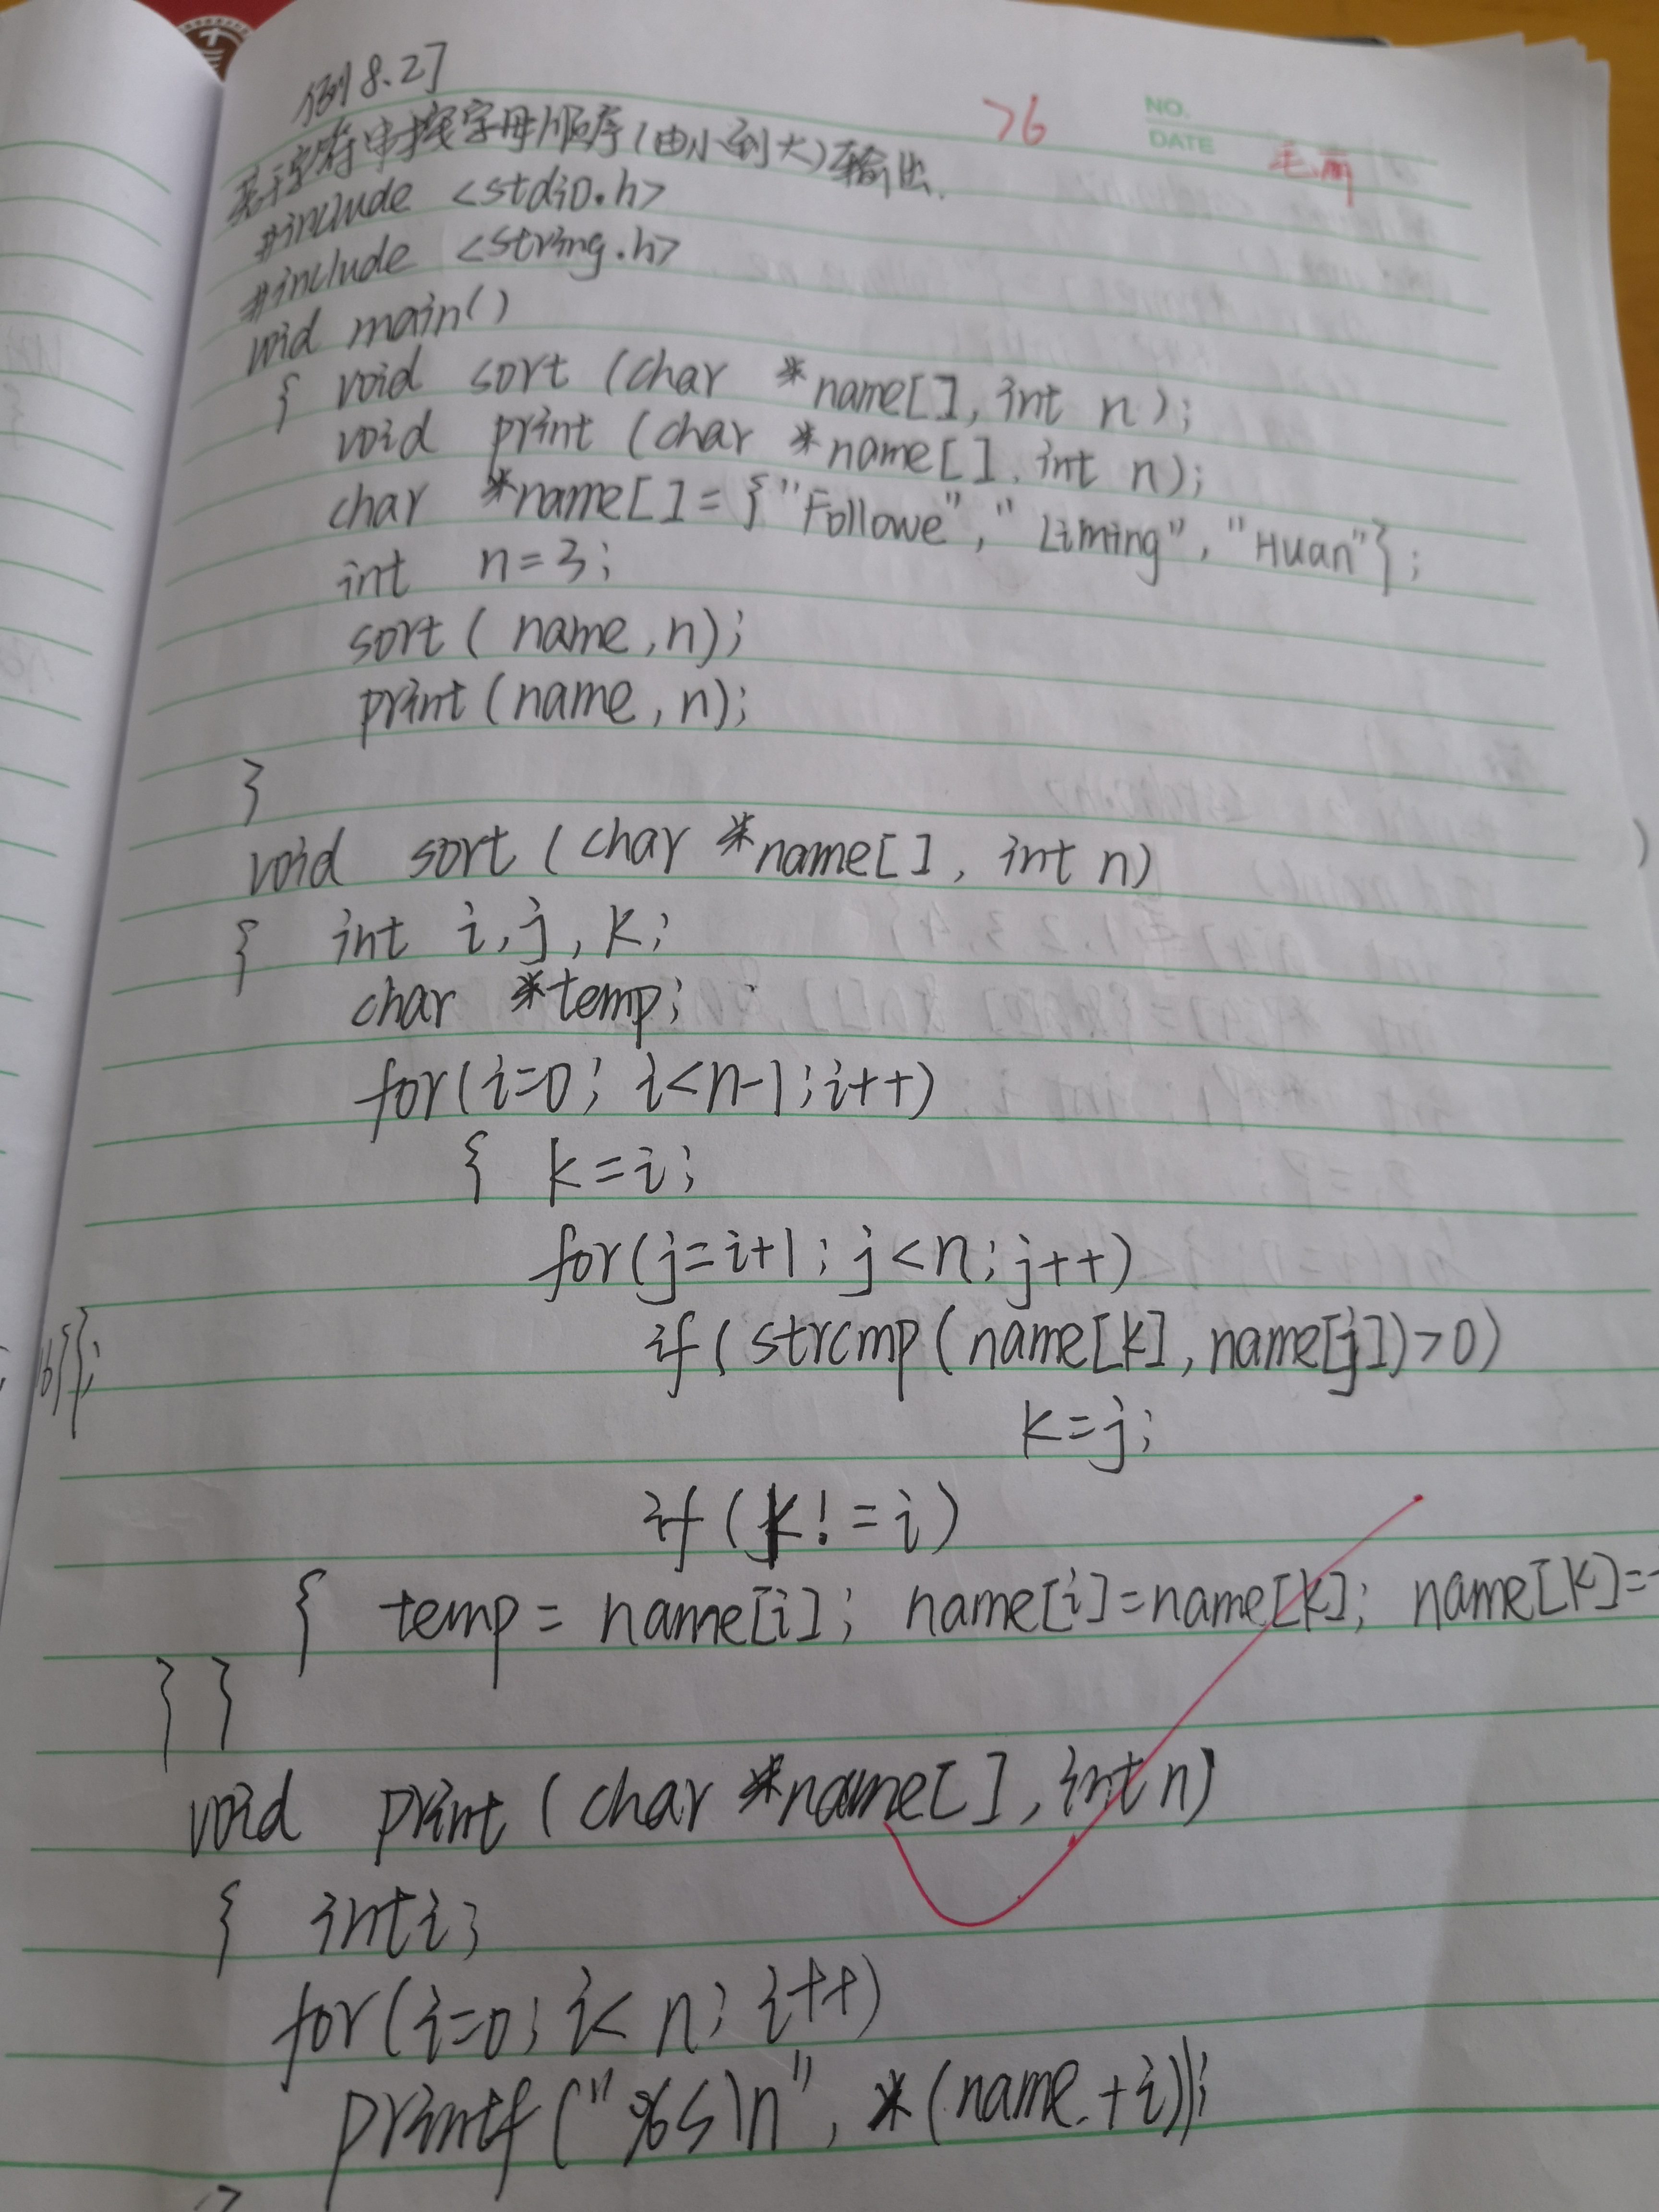 例8.2]
若干字符串按字母顺序(由小到大)输出.
76
NO.
DATE
#include <stdio.h>
#include <string.h>
void main()
{ void sort (char *name[], int n);
void print (char *name[], int n);
char *name[] = {"Followe", "Liming", "Huan"};
int n=3;
sort ( name, n);
print (name, n);
}
void sort (char *name[], int n)
{ int i, j, k;
char *temp;
for(i=0; i<n-1; i++)
{ k=i;
for(j=i+1; j<n; j++)
if( strcmp (name[k], name[j])>0)
k=j;
if (k!=i)
{ temp = name[i]; name[i]=name[k]; name[k]=
} }
void print (char *name[], int n)
{ int i;
for(i=0; i< n; i++)
printf ("%s\n", *(name+i));
}